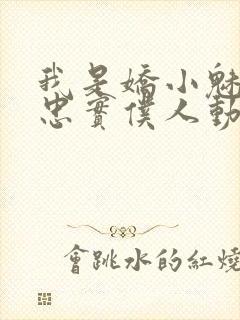 我是嬌小魅
忠實僕人動
會跳水的紅燒